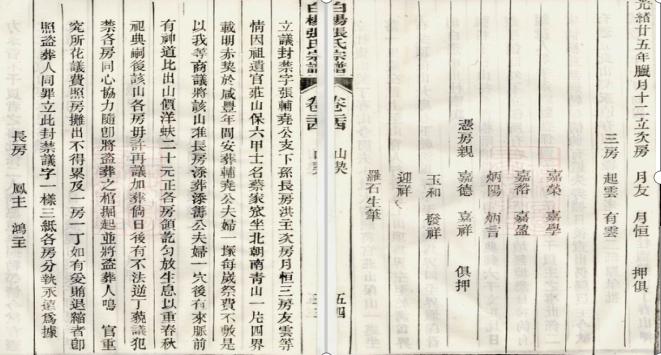 立議封禁字張輔堯公支下孫長房洪主次房月恒三房友雲等
情因祖遺官莊山保六甲土名蔡家窊坐北朝南青山一片四界
載明赤契於咸豐年間安葬輔堯公夫婦一塚每歲祭費不敷是
以我等商議將該山准長房添葬添壽公夫婦一穴後有來脈前
有神道比出山價洋蚨二十元正各房領訖勻放生息以重春秋
祀典嗣後該山各房毋許再議加葬倘日後有不法逆丁藐議犯
禁各房同心協力隨卽將盜葬之棺掘起並將盜葬人鳴 官重
究所化議費照房攤出不得累及一房一丁如有受賄退縮者卽
照盜葬人同罪立此封禁議字一樣三紙各房分執永遠爲據
長房 鳳主 鴻主
白楊張氏宗譜 山契
光緒廿五年臘月十二立次房 月友 月恒 押俱
三房 起雲 有雲
嘉榮 嘉學
嘉裕 嘉盈
炳陽 炳言
憑房親 嘉德 嘉祥 俱押
玉和 發祥
迎祥
羅石生筆
白楊張氏宗譜 山契 五四